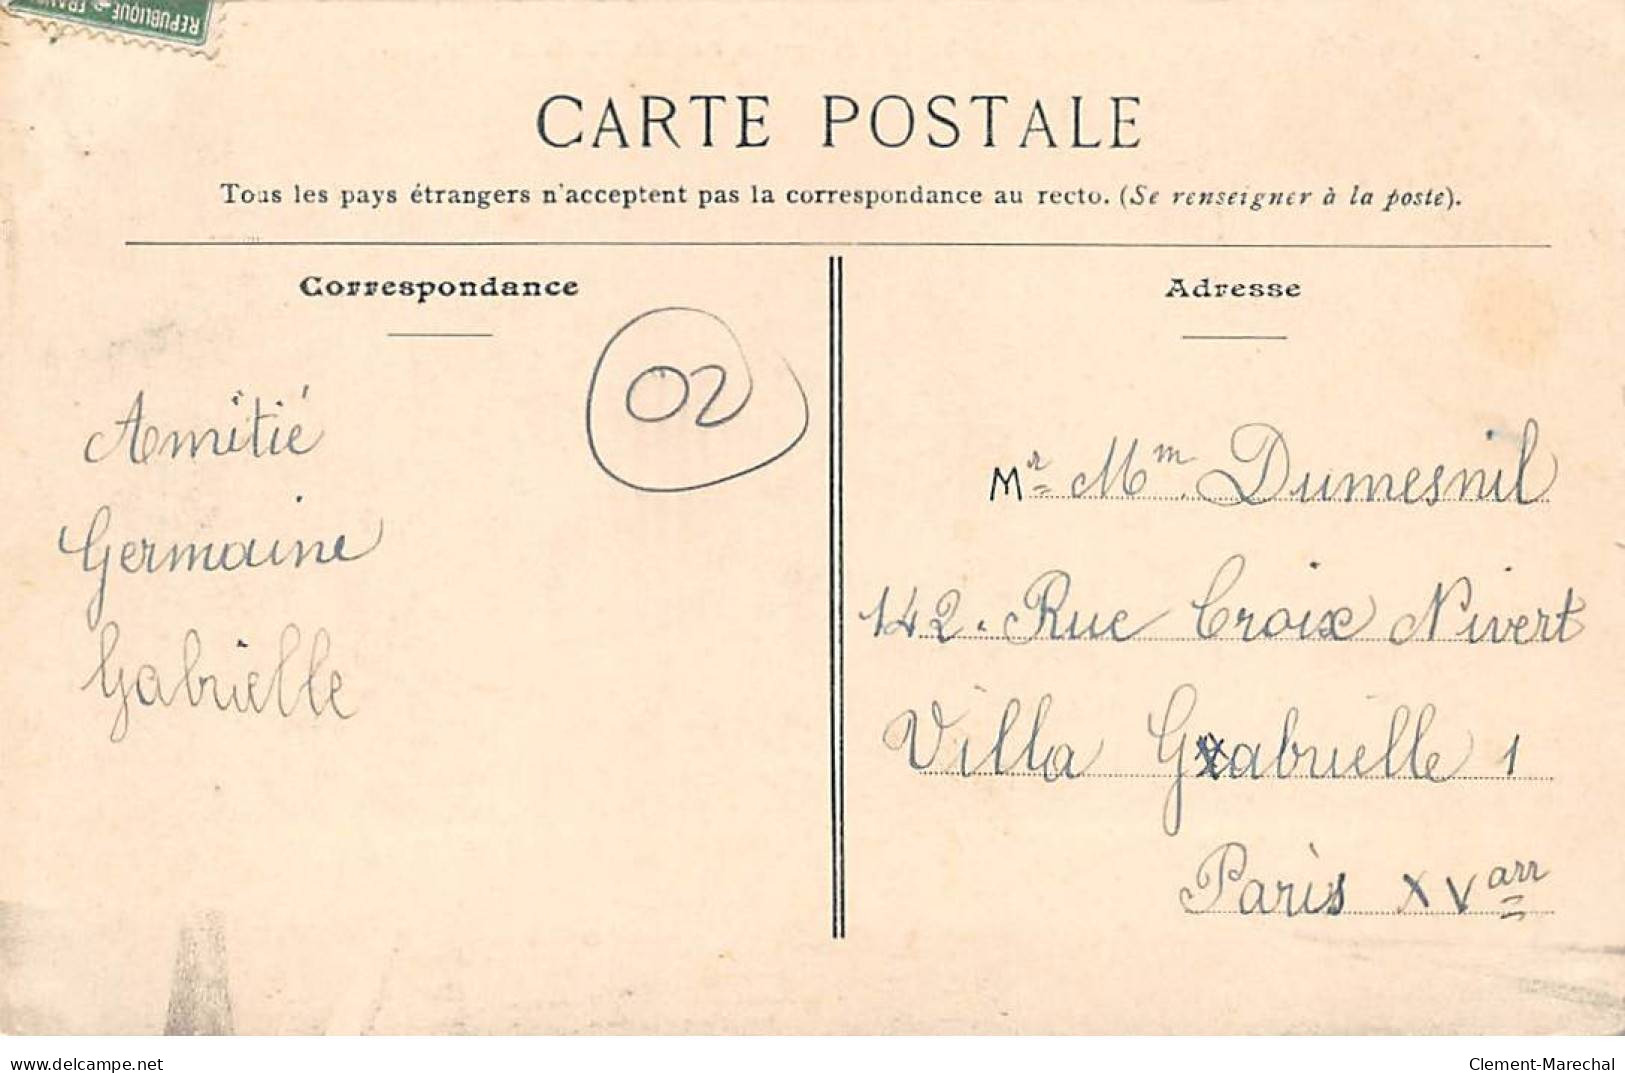 REPUBLIQUE FRAN
CARTE POSTALE
Tous les pays étrangers n'acceptent pas la correspondance au recto. (Se renseigner à la poste).
Correspondance
Adresse
02
Amitié
Germaine
Gabrielle
Mr Mm. Dumesnil
142. Rue Croix Nivert
Villa Gabrielle 1
Paris XVarr
delcampe.net
Clement-Marechal